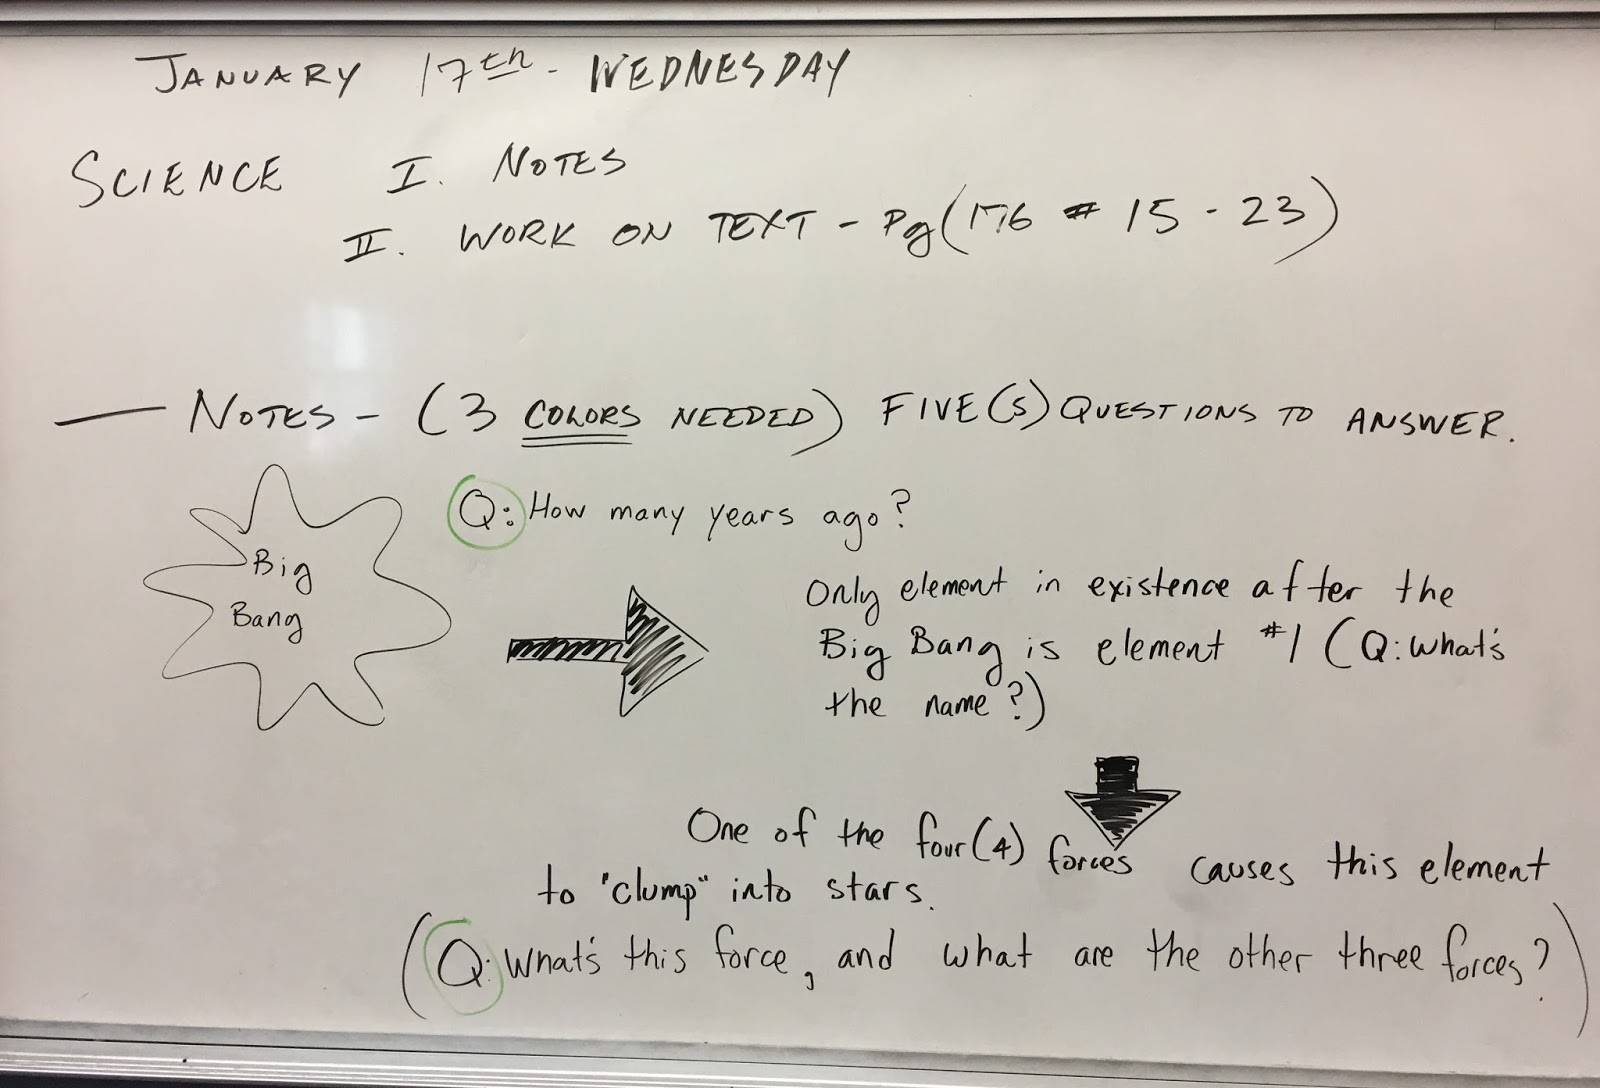 JANUARY 17th - WEDNESDAY
SCIENCE I. NOTES
II. WORK ON TEXT - Pg (176 # 15 - 23)
— NOTES - (3 COLORS NEEDED) FIVE(5) QUESTIONS TO ANSWER.
Big
Bang
Q: How many years ago?
Only element in existence after the
Big Bang is element #1 (Q: What's
the name?)
One of the four(4) forces causes this element
to "clump" into stars.
(Q: What's this force, and what are the other three forces?)